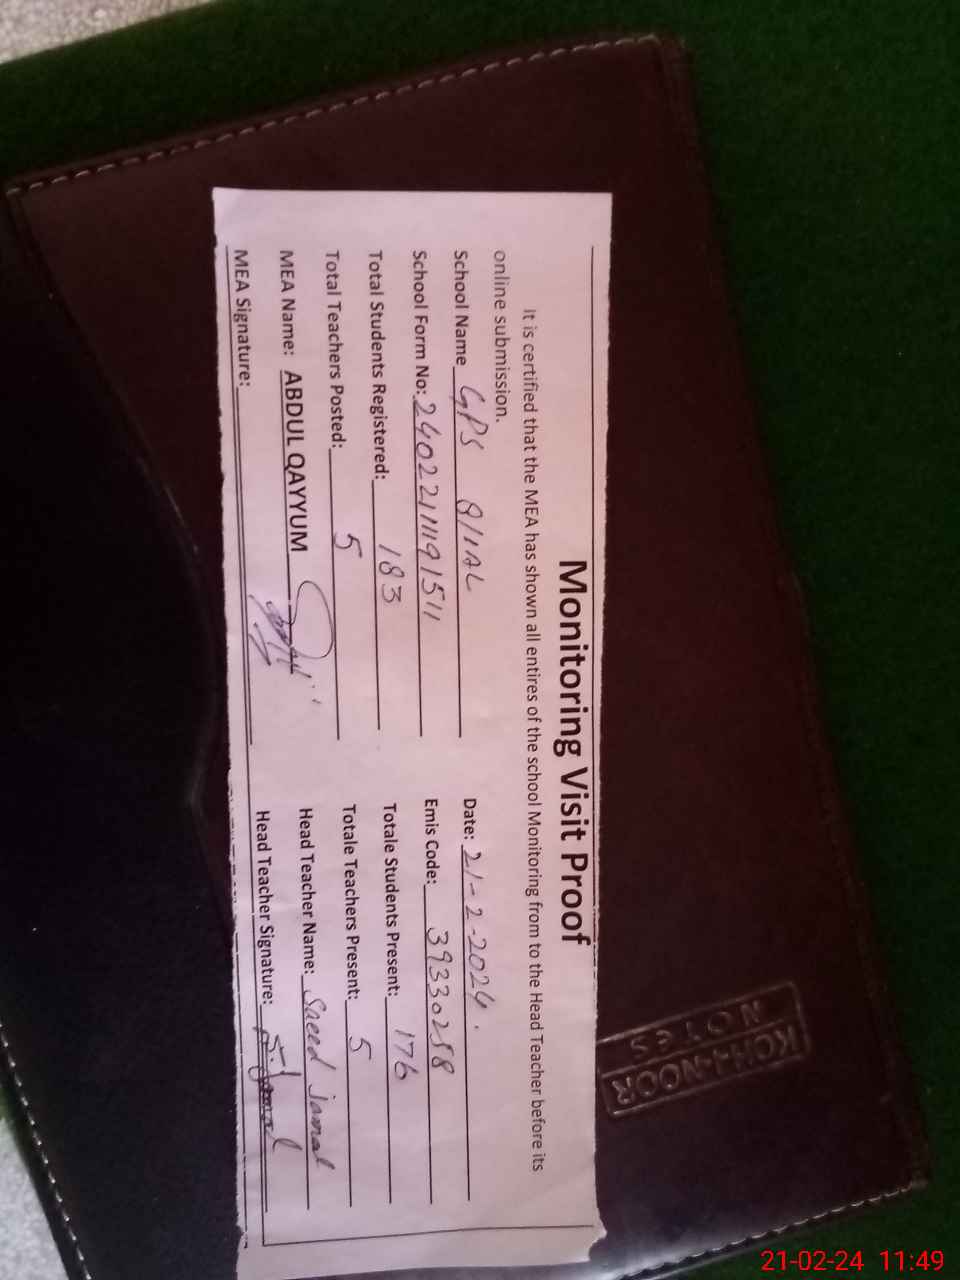 Monitoring Visit Proof
It is certified that the MEA has shown all entires of the school Monitoring from to the Head Teacher before its
online submission.
School Name GPS 8/1AL Date: 21-2-2024.
School Form No: Emis Code: 39330258
Total Students Registered: 183 Totale Students Present: 176
Total Teachers Posted: 5 Totale Teachers Present: 5
MEA Name: ABDUL QAYYUM Head Teacher Name: Saeed Jamal
MEA Signature: Head Teacher Signature:
KOH-I-NOOR
NOTES
21-02-24 11:49